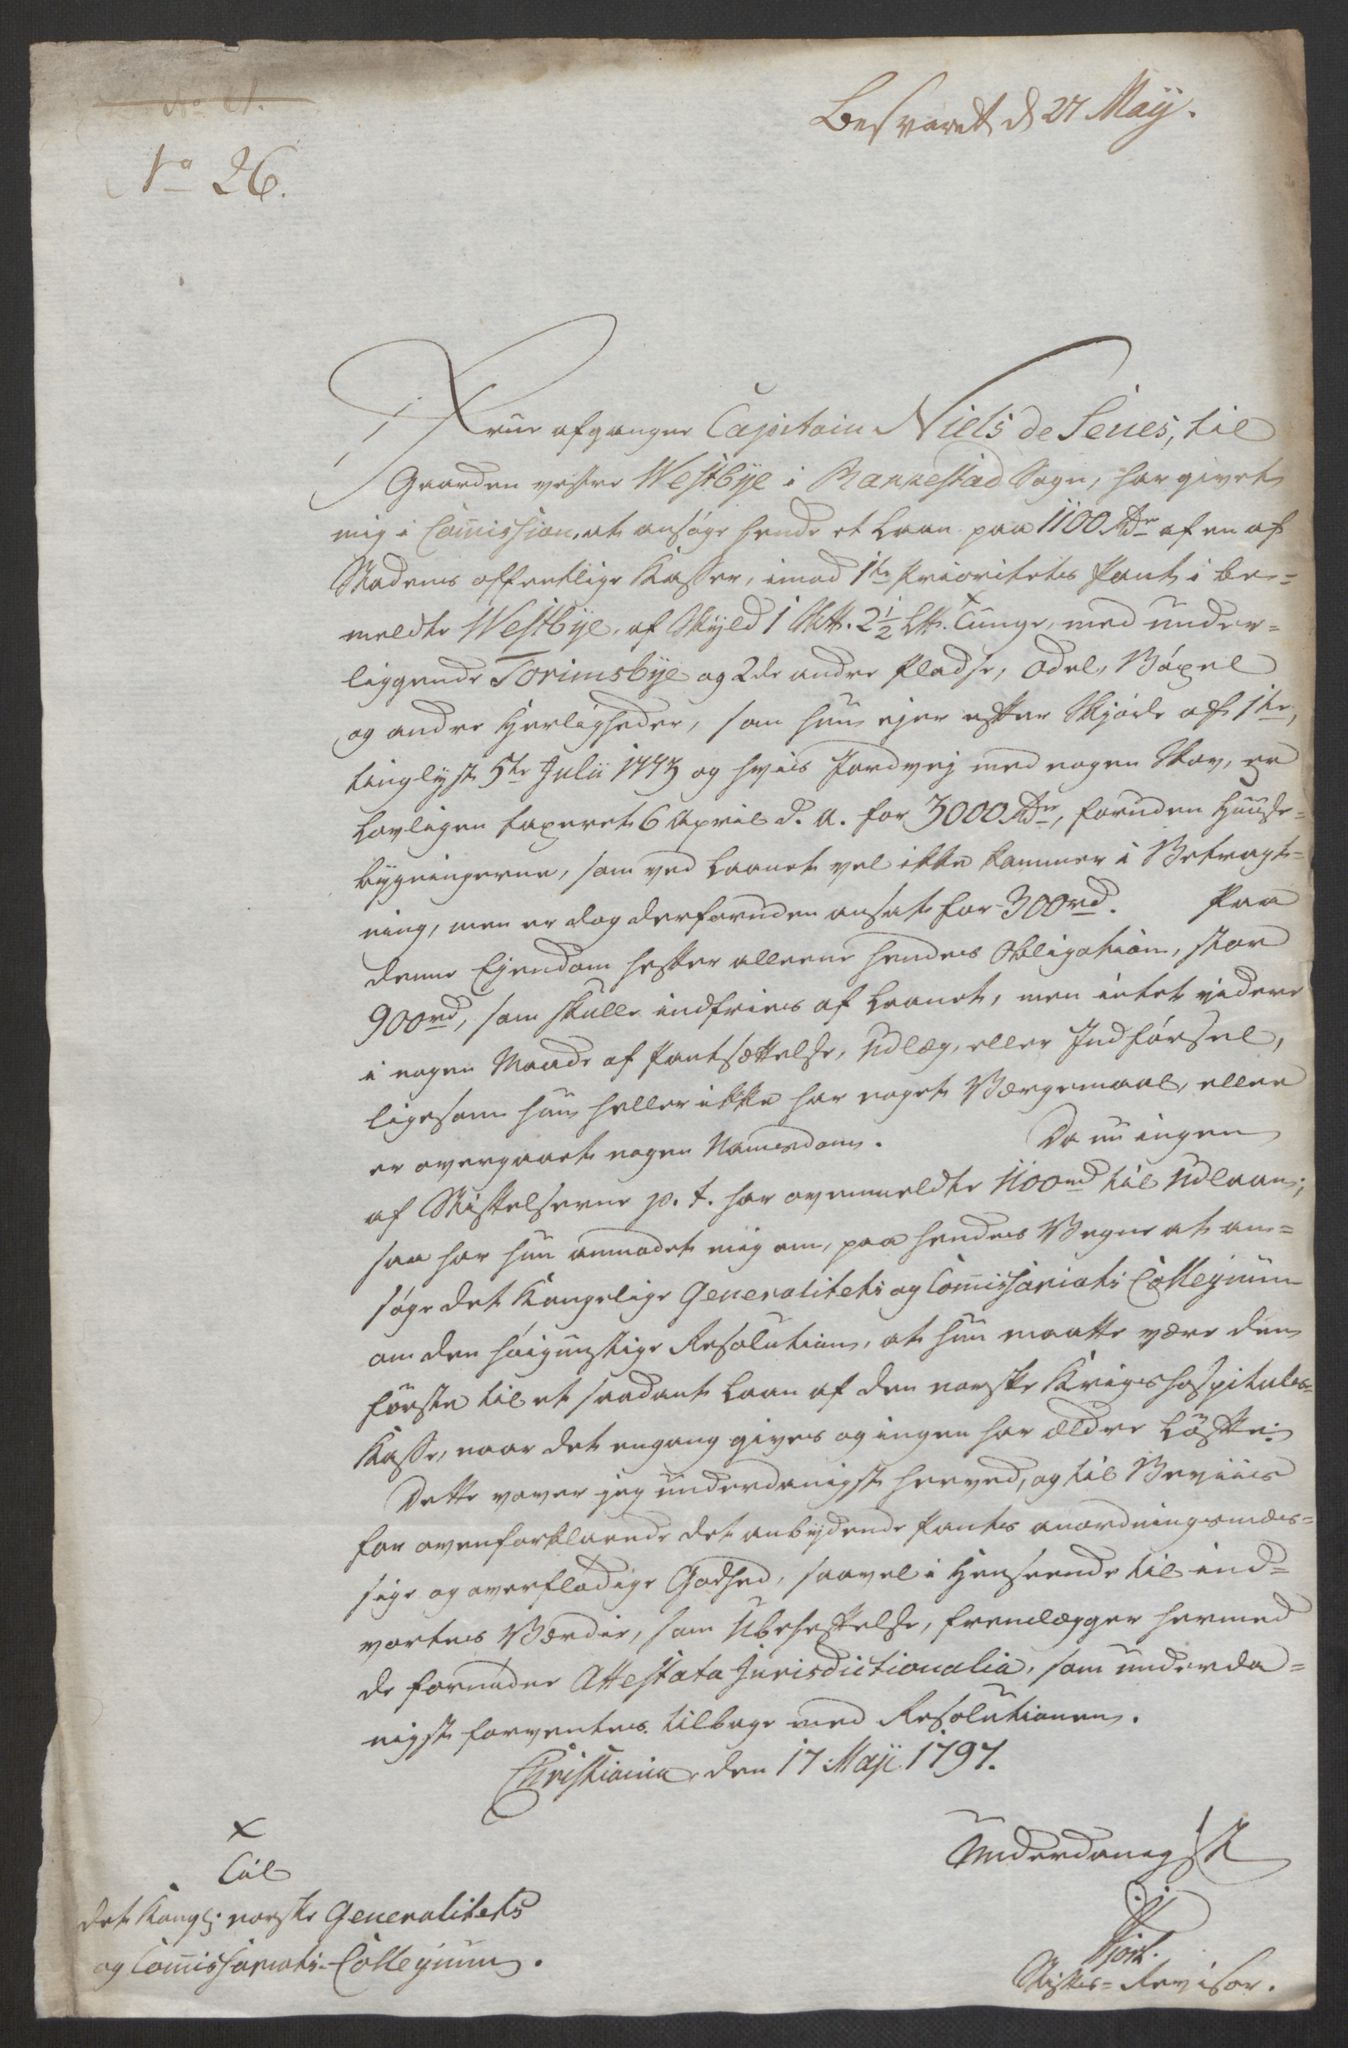 No 26.
Besvaret d 27 May.
Frue afgangne Capitain Niels de Seues, til
Gaarden vestre Westbÿe i Rakkestad Sogn, har givet
mig i Commission, at ansöge hende et Laan paa 1100 Rdr af en af
Stadens offentlige Kasser, imod 1te Prioritets Pant i be-
meldte Westbÿe, af Skyld 1 Skt. 2½ Lt. Tunge, med under-
liggende Torimsbÿe og 2de andre Pladse, Odel, Böxel
og andre Herligheder, som hun ejer efter Skjöde af 1te,
tinglyst 5te Julii 1773 og hvis Jordvej med nogen Skov, er
Lovligen taxeret 6 April d. A. for 3000 Rdr, foruden Huuse-
bygningerne, som ved Laanet vel ikke kommer i Betragt-
ning, men er dog derforuden ansat for 300rd. Paa
denne Ejendom hefter alleene hendes Obligation, stor
900rd, som skulle indfries af Laanet, men intet videre
i nogen Maade af Pantsættelse, Udlæg, eller Indförsel,
ligesom hun heller ikke har noget Værgemaal, eller
er overgaaet nogen Namsdom. Da nu ingen
af Stiftelserne p. t. har ovenmeldte 1100rd til Udlaan;
saa har hun anmodet mig om, paa hendes Vegne at an-
söge det Kongelige Generalitets og Commissariats Collegium
om den höigunstige Resolution, at hun maatte være den
förste til et saadant Laan af den norske Krigshospitals-
Kasse, naar det engang gives og ingen har ældre Löfte.
Dette vover jeg underdanigst herved, og til Beviis
for ovenforklarede det anbydende Pants anordningsmæs-
sige og overflödige Godhed, saavel i Henseende til ind-
vortes Værdie, som Ubeheftelse, fremlægger hermed
de fornödne Attestata Jurisdictionalia, som underda-
nigst forventes tilbage med Resolutionen.
Christiania den 17 Maji 1797.
Underdanigst
Stifts-Revisor.
x
Til
det Kongl. norske Generalitets
og Commissariats-Collegium.